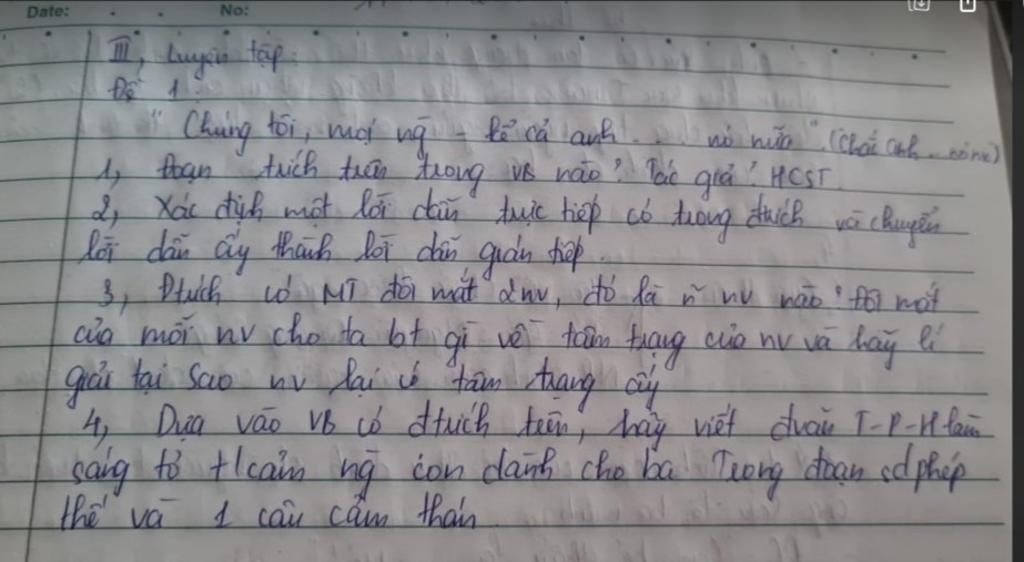 Date: . . No:
III, Luyện tập:
Đề 1:
"Chúng tôi, mọi ng - kể cả anh... nó nữa". (Chắc anh
1, Đoạn trích trên trong VB nào? Tác giả? HCST
2, Xác định một lời dẫn trực tiếp có trong đtrích và chuyển
lời dẫn ấy thành lời dẫn gián tiếp.
3, Đtrích có MT đôi mắt 2nv, đó là n~ nv nào? Đôi mắt
của mỗi nv cho ta bt gì về tâm trạng của nv và hãy lí
giải tại sao nv lại có tâm trạng ấy
4, Dựa vào VB có đtrích trên, hãy viết đvăn T-P-H làm
sáng tỏ t/cảm ng con dành cho ba. Trong đoạn sd phép
thế và 1 câu cảm thán